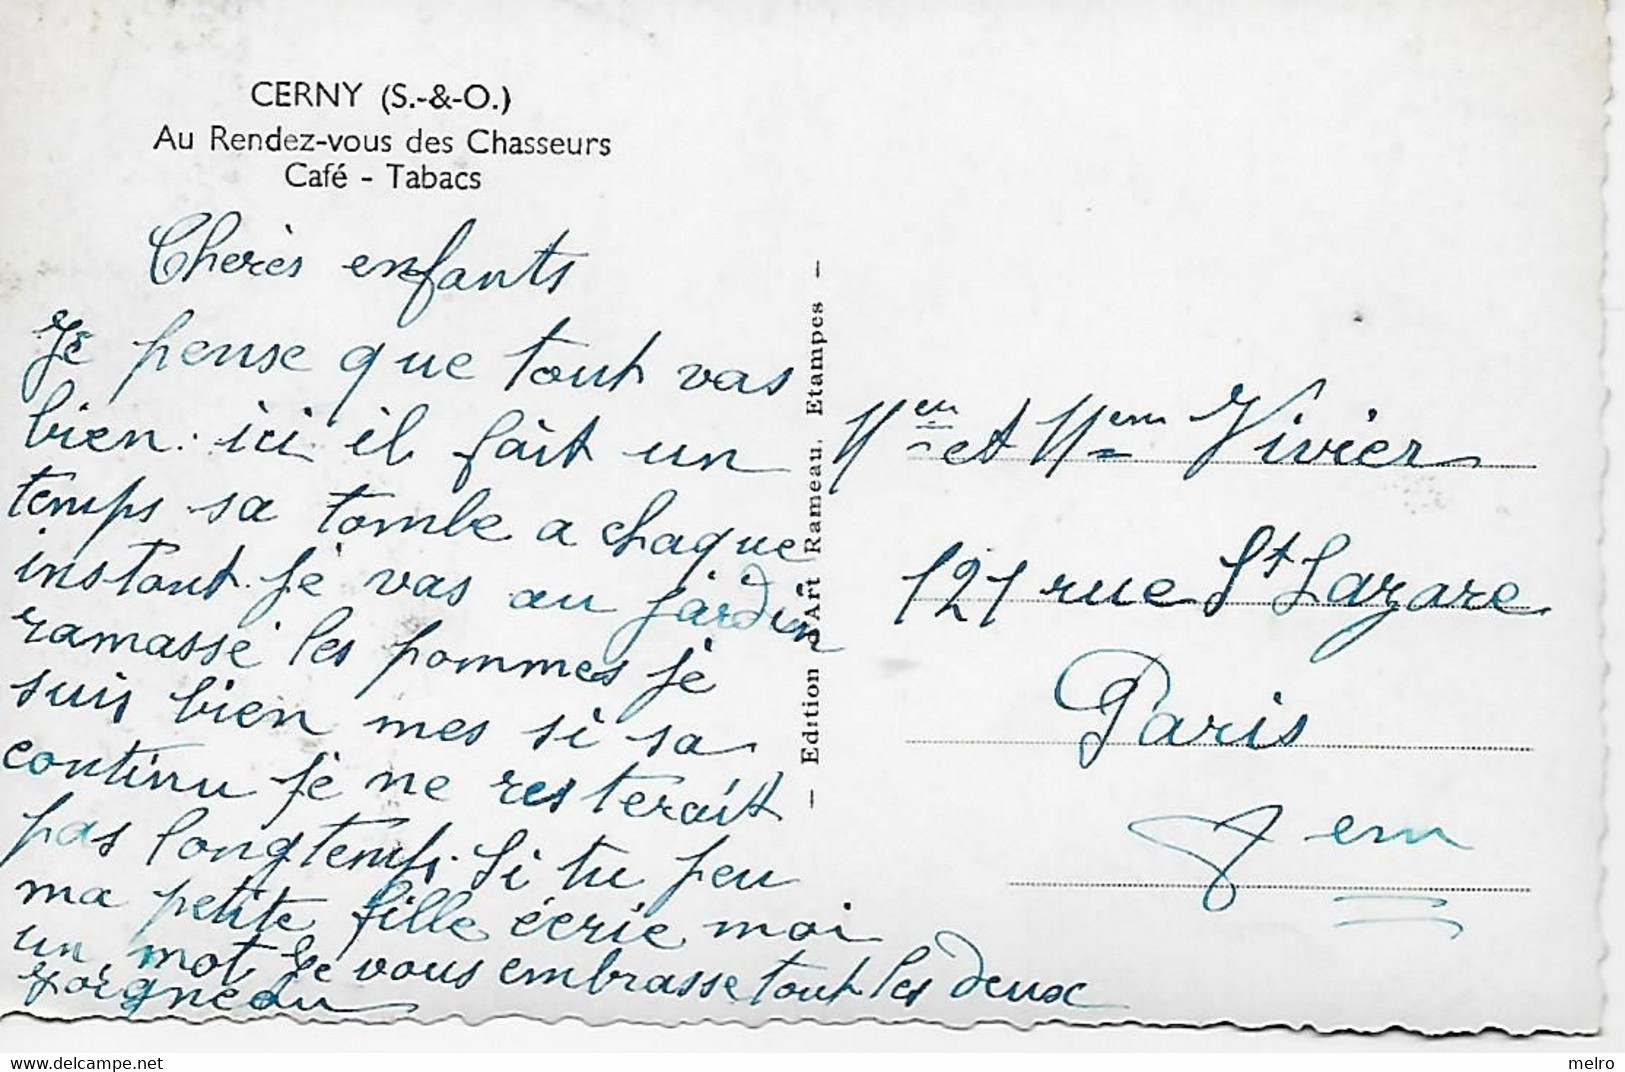 CERNY (S.-&-O.)
Au Rendez-vous des Chasseurs
Café - Tabacs
Cherès enfants
Je pense que tout vas
bien. ici il fait un
temps sa tombe a chaque
instant. je vas au jardin
ramassé les pommes je
suis bien mes si sa
continu je ne resterait
pas longtemps. Si tu peu
ma petite fille écrie moi
un mot Je vous embrasse tout les deux
- Edition d'Art Rameau. Etampes -
et Vivier
121 rue St Lazare
Paris
em
melro